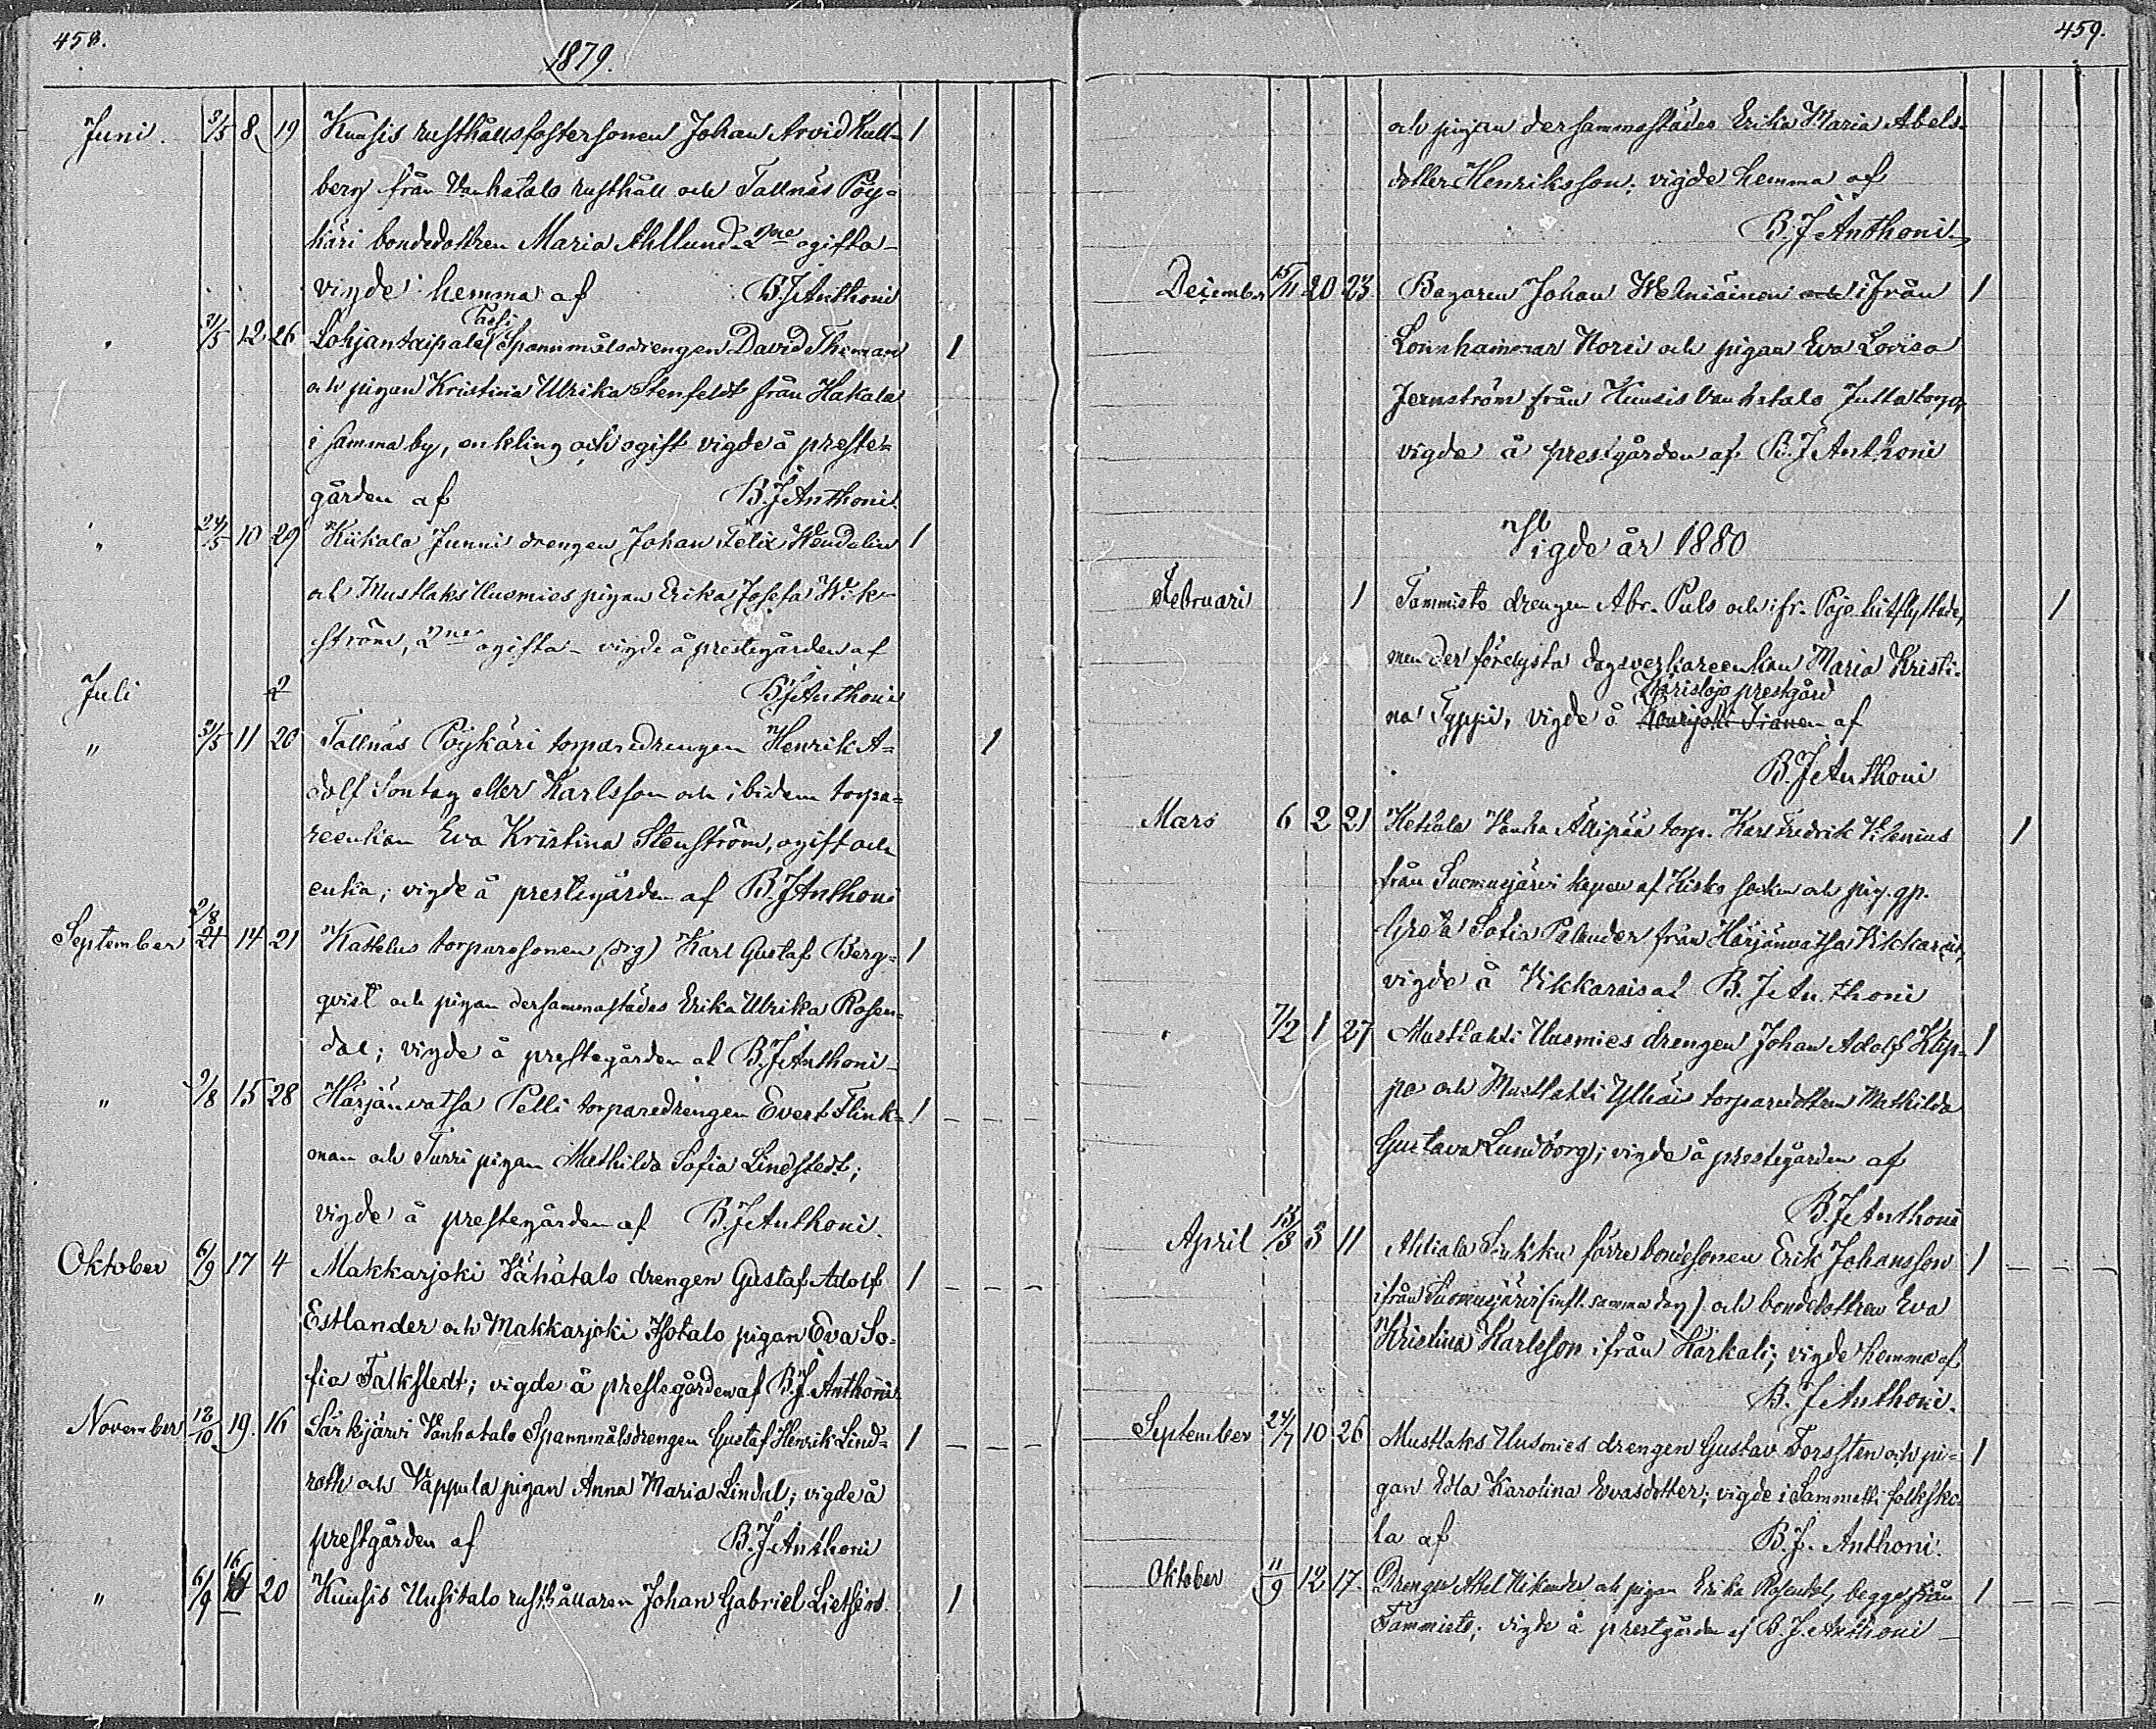 458.
1879.
Juni. 3/5 8 19 Kuusis rusthållsfostersonen Johan Arvid Kull- 1
berg från Vanhatalo rusthåll och Tallnäs Pöy-
käri bondedottren Maria Ahllund 2ne ogifta
vigde hemma af B. J. Anthoni
" 3/5 12 26 Lohjantaipale Spannmålsdrengen David Theman 1
och pigan Kristina Ulrika Stenfeldt från Hakala
i samma by, enkling och ogift vigde å preste-
gården af B. J. Anthoni.
" 24/5 10 29 Kiikala Junni drengen Johan Felix Wendelin 1
och Mustlaks Uusmies pigan Erika Josefa Wik-
ström, 2ne ogifta – vigde å prestegården af
Juli 2 B. J. Anthoni
" 31/5 11 20 Tallnäs Pöykäri torparedrengen Henrik A- 1
dolf Sontag eller Karlsson och ibidem torpa-
reenkan Eva Kristina Stenström, ogift och
enka; vigde å prestegården af B. J. Anthoni
September 2/8 21 14 21 Kattelus torparesonen Karl Gustaf Berg- 1
qvist och pigan dersammastädes Erika Ulrika Rosen-
dal; vigde å prestegården af B. J. Anthoni
" 9/8 15 28 Härjänvatsa Pelli torparedrengen Evert Flink- 1
man och Turri pigan Mathilda Sofia Lindstedt;
vigde å prestegården af B. J. Anthoni.
Oktober 6/9 17 4 Makkarjoki Vähätalo drengen Gustaf Adolf 1
Estlander och Makkarjoki Isotalo pigan Eva So-
fia Falkstedt; vigde å prestegården af B. J. Anthoni
November 12/10 19. 16 Särkjärvi Vanhatalo Spannmålsdrengen Gustaf Henrik Lind- 1
roth och Vappula pigan Anna Maria Lindal; vigde å
prestgården af B. J. Anthoni
" 6/9 16 20 Kuusis Uusitalo rusthållaren Johan Gabriel 1
459.
och pigan dersammastädes Erika Maria Abels-
dotter Henriksson; vigde hemma af
B. J. Anthoni
December 15/11 20 23. Bagaren Johan och ifrån 1
Lonnhammar Norri och pigan Eva Lovisa
Jernström från Kuusis Vanhatalo torp,
vigde å prestgården af B. J. Anthoni
Vigde år 1880
Februari 1 Tammisto drengen Abr. Puls och ifr. Pojo hitflyttade, 1
men der förelysta dagsverkareenkan Maria Kristi-
Karislojo prestgård
na Typpi, vigde å af
B. J. Anthoni
Mars 6 2 21 Ketkala Vanha torp. Karl Fredrik Vilenius 1
från Suomusjärvi kapell af Kisko socken och pig. gp.
Greta Sofia Palander från Härjänvatsa Vikkarais,
vigde å Vikkarais af B. J. Anthoni
" 7/2 1 27 Mustlahti Uusmies drengen Johan Adolf Klip- 1
pa och Mustlahti torparedottren Mathilda
Gustava Lundborg; vigde å prestegården af
B. J. Anthoni
April 13/3 3 11 Ahtiala förre bondesonen Erik Johansson 1
ifrån Suomusjärvi (infl. samma dag) och bondedottren Eva
Kristina Karlsson ifrån Karkali; vigde hemma af
B. J. Anthoni.
September 24/7 10 26 Mustlaks Uusmies drengen Gustav Forsten och pi- 1
gan Edla Karolina Evasdotter; vigde i Sammatti folksko-
la af B. J. Anthoni.
Oktober 11/9 12 17. Drengen Abel Nikander och pigan Erika Rosendal, begge från 1
Tammisto; vigde å prestgården af B. J. Anthoni